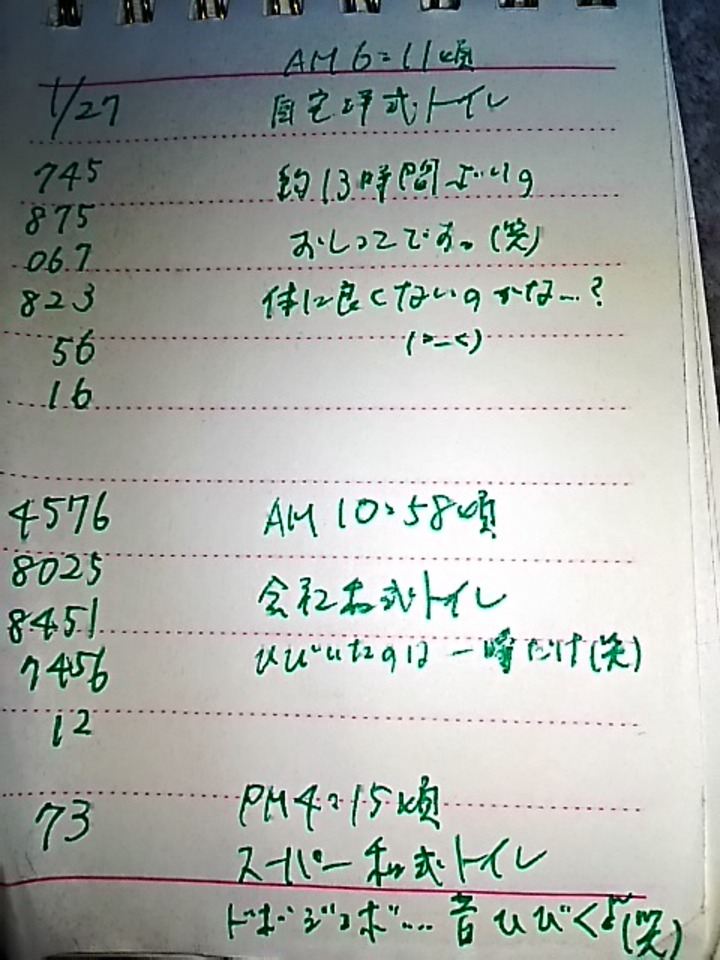 AM 6:11頃
1/27 自宅洋式トイレ
745 約13時間ぶりの
875
067 おしっこです。(笑)
823 体に良くないのかな…?
56 (>_<)
16
4576 AM 10:58頃
8025
8451 会社和式トイレ
7456 ひびいたのは一瞬だけ(笑)
12
73 PM4:15頃
スーパー和式トイレ
音ひびくよ(笑)